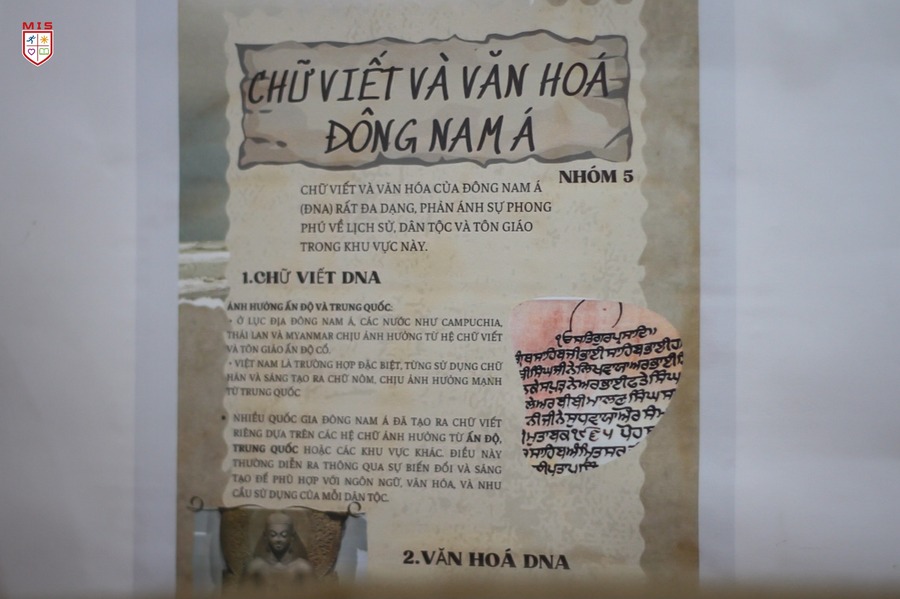 MIS
CHỮ VIẾT VÀ VĂN HOÁ
ĐÔNG NAM Á
NHÓM 5
CHỮ VIẾT VÀ VĂN HÓA CỦA ĐÔNG NAM Á
(ĐNA) RẤT ĐA DẠNG, PHẢN ÁNH SỰ PHONG
PHÚ VỀ LỊCH SỬ, DÂN TỘC VÀ TÔN GIÁO
TRONG KHU VỰC NÀY.
1.CHỮ VIẾT DNA
ẢNH HƯỞNG ẤN ĐỘ VÀ TRUNG QUỐC:
- Ở LỤC ĐỊA ĐÔNG NAM Á, CÁC NƯỚC NHƯ CAMPUCHIA,
THÁI LAN VÀ MYANMAR CHỊU ẢNH HƯỞNG TỪ HỆ CHỮ VIẾT
VÀ TÔN GIÁO ẤN ĐỘ CỔ.
- VIỆT NAM LÀ TRƯỜNG HỢP ĐẶC BIỆT, TỪNG SỬ DỤNG CHỮ
HÁN VÀ SÁNG TẠO RA CHỮ NÔM, CHỊU ẢNH HƯỞNG MẠNH
TỪ TRUNG QUỐC
• NHIỀU QUỐC GIA ĐÔNG NAM Á ĐÃ TẠO RA CHỮ VIẾT
RIÊNG DỰA TRÊN CÁC HỆ CHỮ ẢNH HƯỞNG TỪ ẤN ĐỘ,
TRUNG QUỐC HOẶC CÁC KHU VỰC KHÁC. ĐIỀU NÀY
THƯỜNG DIỄN RA THÔNG QUA SỰ BIẾN ĐỔI VÀ SÁNG
TẠO ĐỂ PHÙ HỢP VỚI NGÔN NGỮ, VĂN HÓA, VÀ NHU
CẦU SỬ DỤNG CỦA MỖI DÂN TỘC.
2.VĂN HOÁ DNA